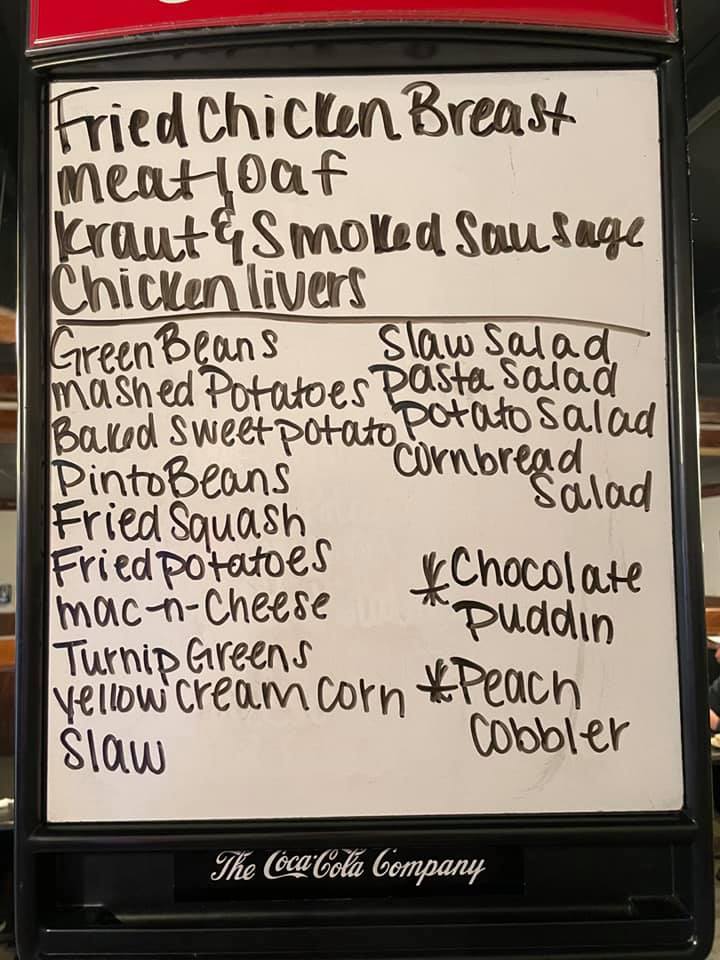 Fried Chicken Breast
meatloaf
Kraut & Smoked Sausage
Chicken livers
Green Beans
mashed Potatoes
Baked sweet potato
Pinto Beans
Fried Squash
Fried potatoes
mac-n-Cheese
Turnip Greens
yellow cream corn
Slaw
Slaw Salad
pasta Salad
potato Salad
cornbread
Salad
*Chocolate
puddin
*Peach
Cobbler
The Coca-Cola Company